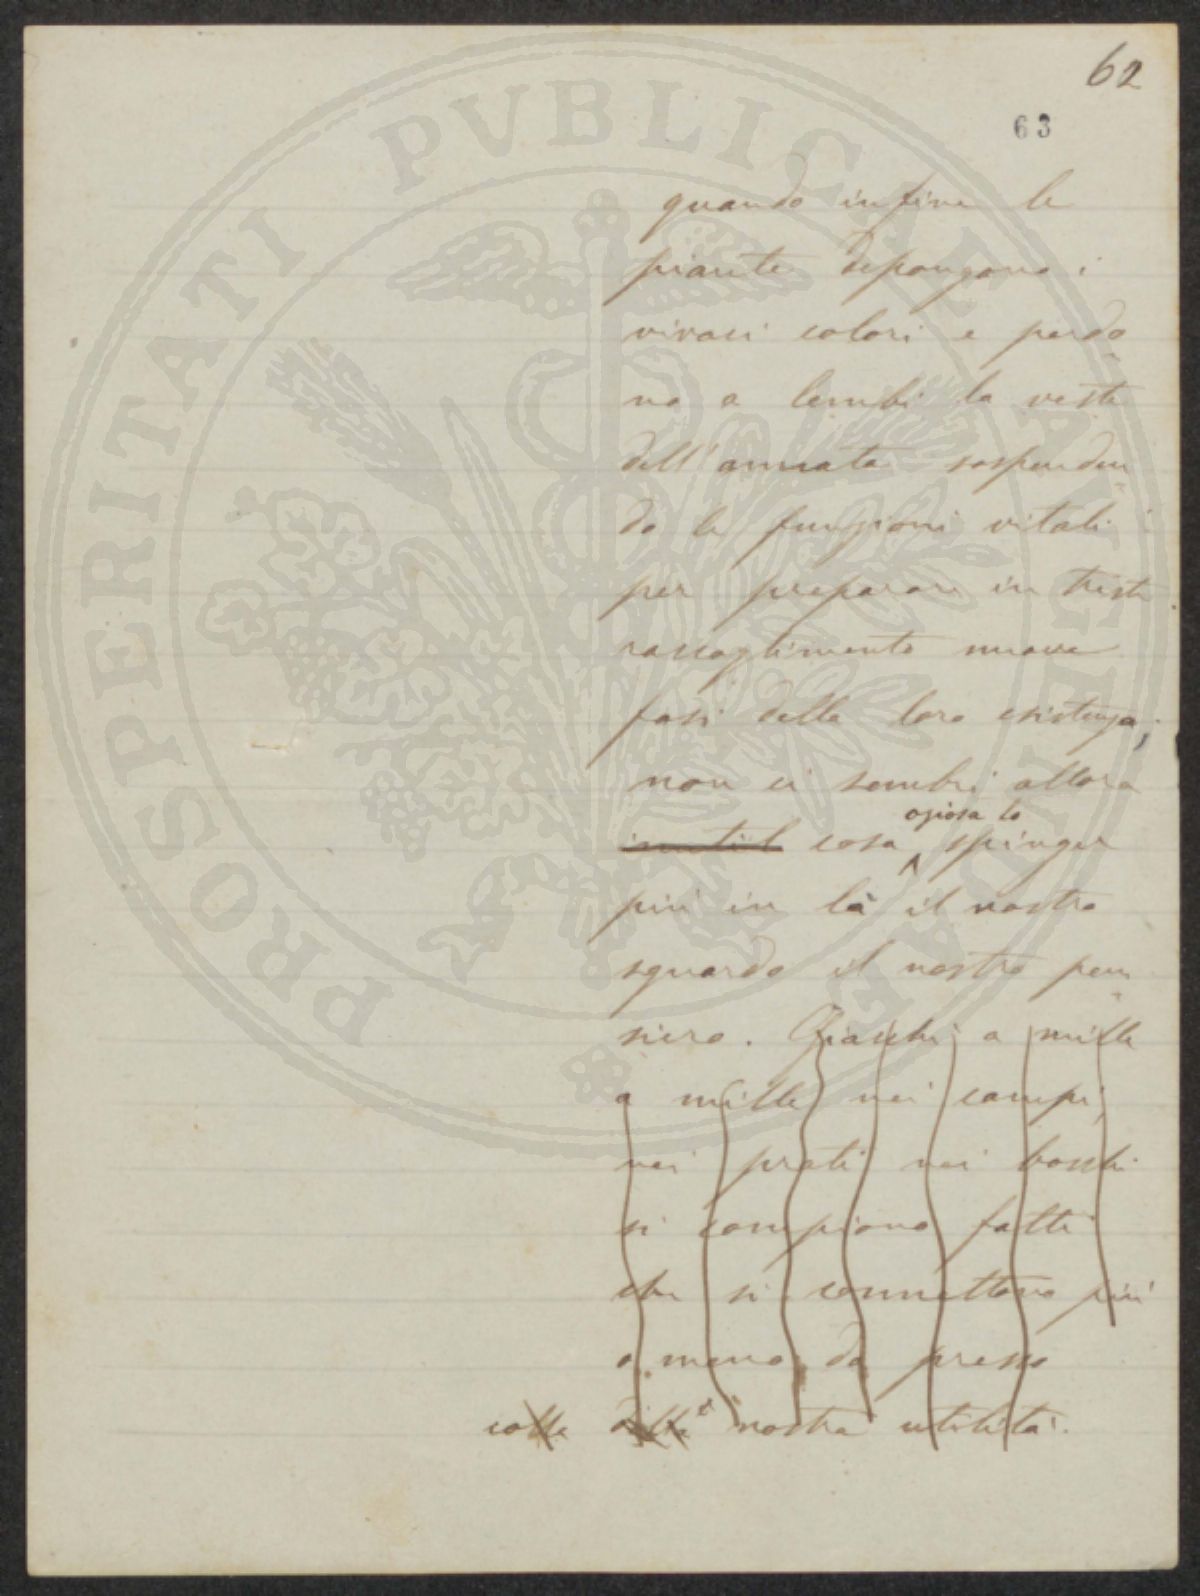 62
63
PROSPERITATI PVBLICAE AVGENDAE
quando infine le
piante depongono i
vivaci colori e perdo
no a lembi la veste
dell'annata sospenden
do le funzioni vitali
per preparare in triste
raccoglimento nuove
fasi della loro esistenza;
non ci sembri allora
oziosa lo
inutile cosa spinger
più in là il nostro
sguardo il nostro pen
siero. Giacchè a mille
a mille nei campi,
nei prati nei boschi
si compiono fatti
che si connettono più
o meno da presso
colla della nostra utilità.